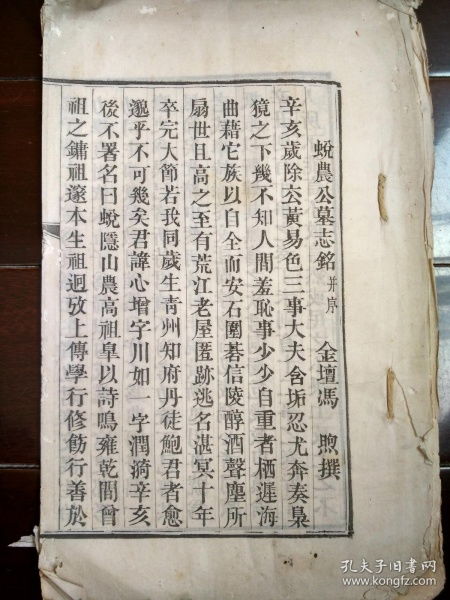 蛻農公墓志銘 并序 金壇馮 煦撰
辛亥歲除玄黃易色三事大夫含垢忍尤奔奏梟
獍之下幾不知人間羞恥事少少自重者栖遲海
曲藉它族以自全而安石圍碁信陵醇酒聲塵所
扇世且高之至有荒江老屋匿跡逃名湛冥十年
卒完大節若我同歲生青州知府丹徒鮑君者愈
邈乎不可幾矣君諱心增字川如一字潤漪辛亥
後不署名曰蛻隱山農高祖皋以詩鳴雍乾間曾
祖之鏞祖邃本生祖迥攷上傳學行修飭行善於
孔夫子旧书网
www.kongfz.com